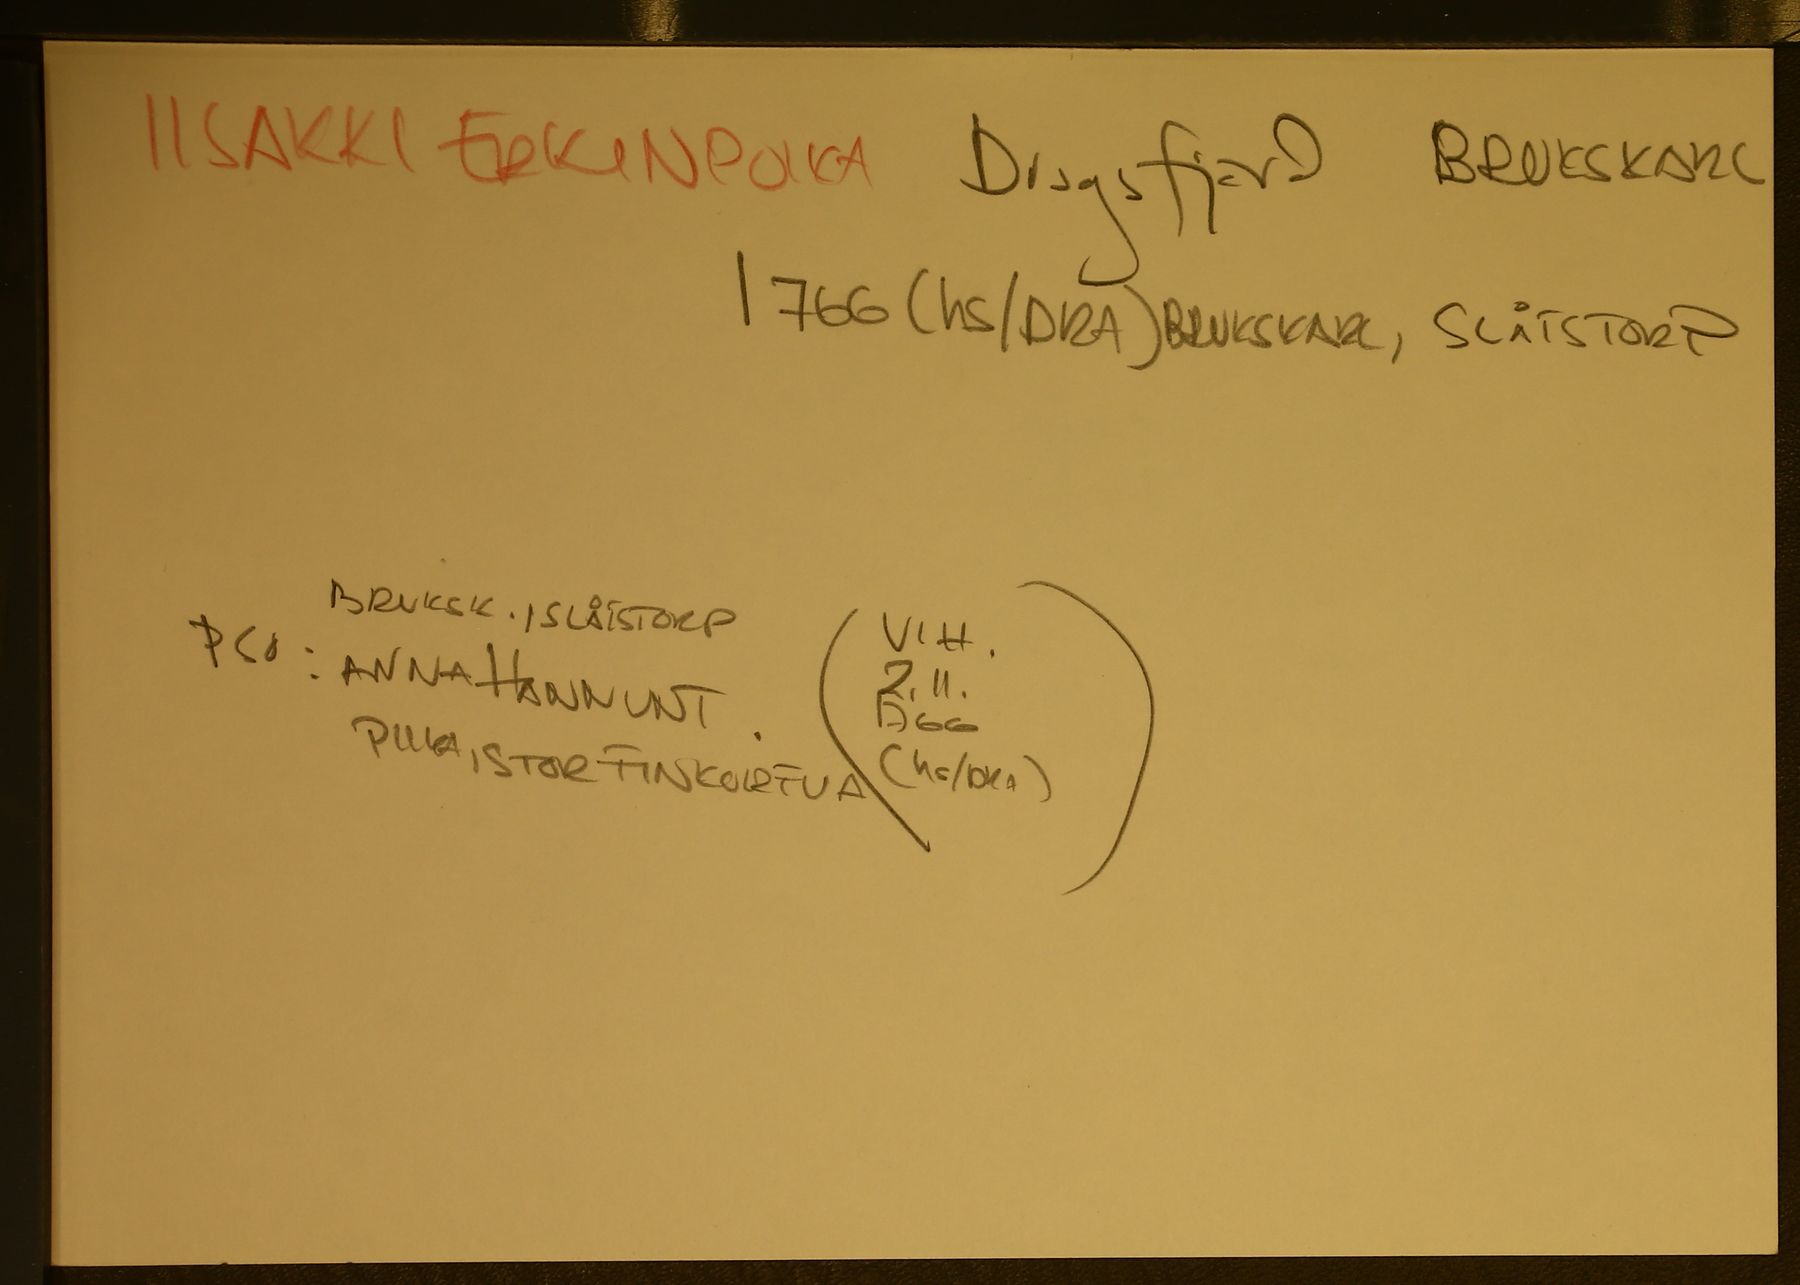 IISAKKI ERKINPOIKA Dragsfjerd BRUKSKARL
1766 (hs/DRA) BRUKSKARL, SLÅTSTORP
BRUKSK., SLÅTSTORP
PSO: ANNA HANNUNT.
PIIKA, STORFINSKOIRTUA
(VIH.
2.11.
1766
(hs/DRA))